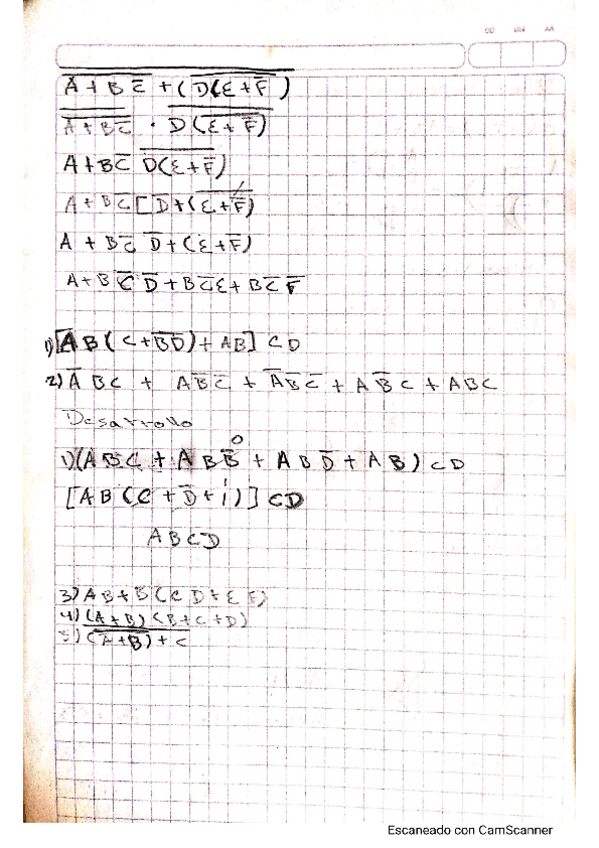 A + B C̅ + ( D(E + F̅ )
A + B C̅ · D (E + F̅)
A + B C̅ D(E + F̅)
A + B C̅ [ D̅ + (E + F̅)
A + B C̅ D̅ + (E + F̅)
A + B C̅ D̅ + B C̅ E + B C̅ F̅
1) [A B ( C + B̅D̅) + AB] C D
2) A̅ B C + A B̅ C̅ + A̅ B̅ C̅ + A B̅ C + A B C
Desarrollo
0
1) (A B C + A B B̅ + A B D̅ + A B) C D
[A B (C + D̅ + 1)] C D
A B C D
3) A B + B (C D + E F)
4) (A + B) (B + C + D)
5) (A + B) + C
Escaneado con CamScanner